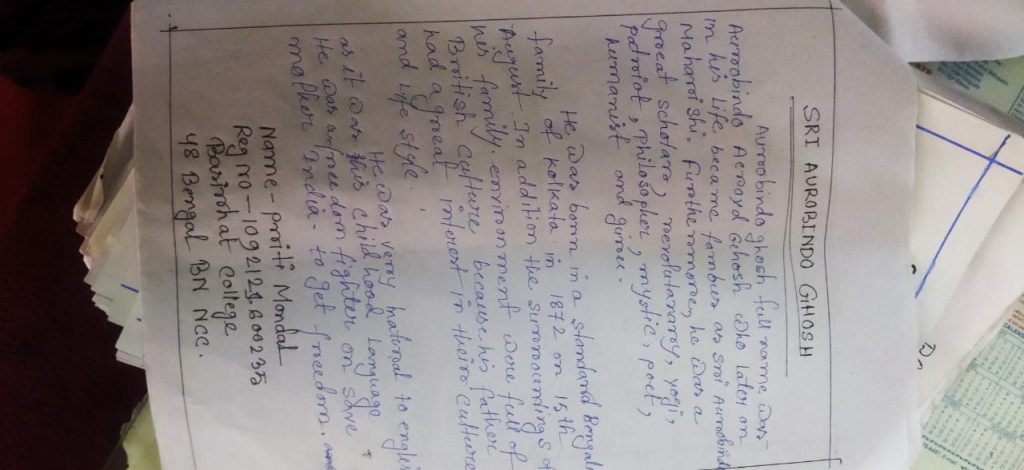 SRI AUROBINDO GHOSH
Auroobindo ghosh full name was
Auroobindo Acroyd Ghosh who later on
in his life became fambus as sri Aurobindo
Maharoishi. Furthermore, he was a
great scholar, revolutanary, yogi,
patriot, philosopher, mystic, poet,
humanist and guru.
He was born in a standard Bengali
family of kolkata in 1872 on 15th
August. In addition the surroundings of
his family environment were full of
British culture because his father
had a great interest in their culture
and life style.
He was very natural to english
as it was his childhood language.
He was a freedom fighter on save
mother India. to get freedom.
Name - Priti Mondal
Regno - 109212160023
Basirhat College
48 Bengal BN NCC.